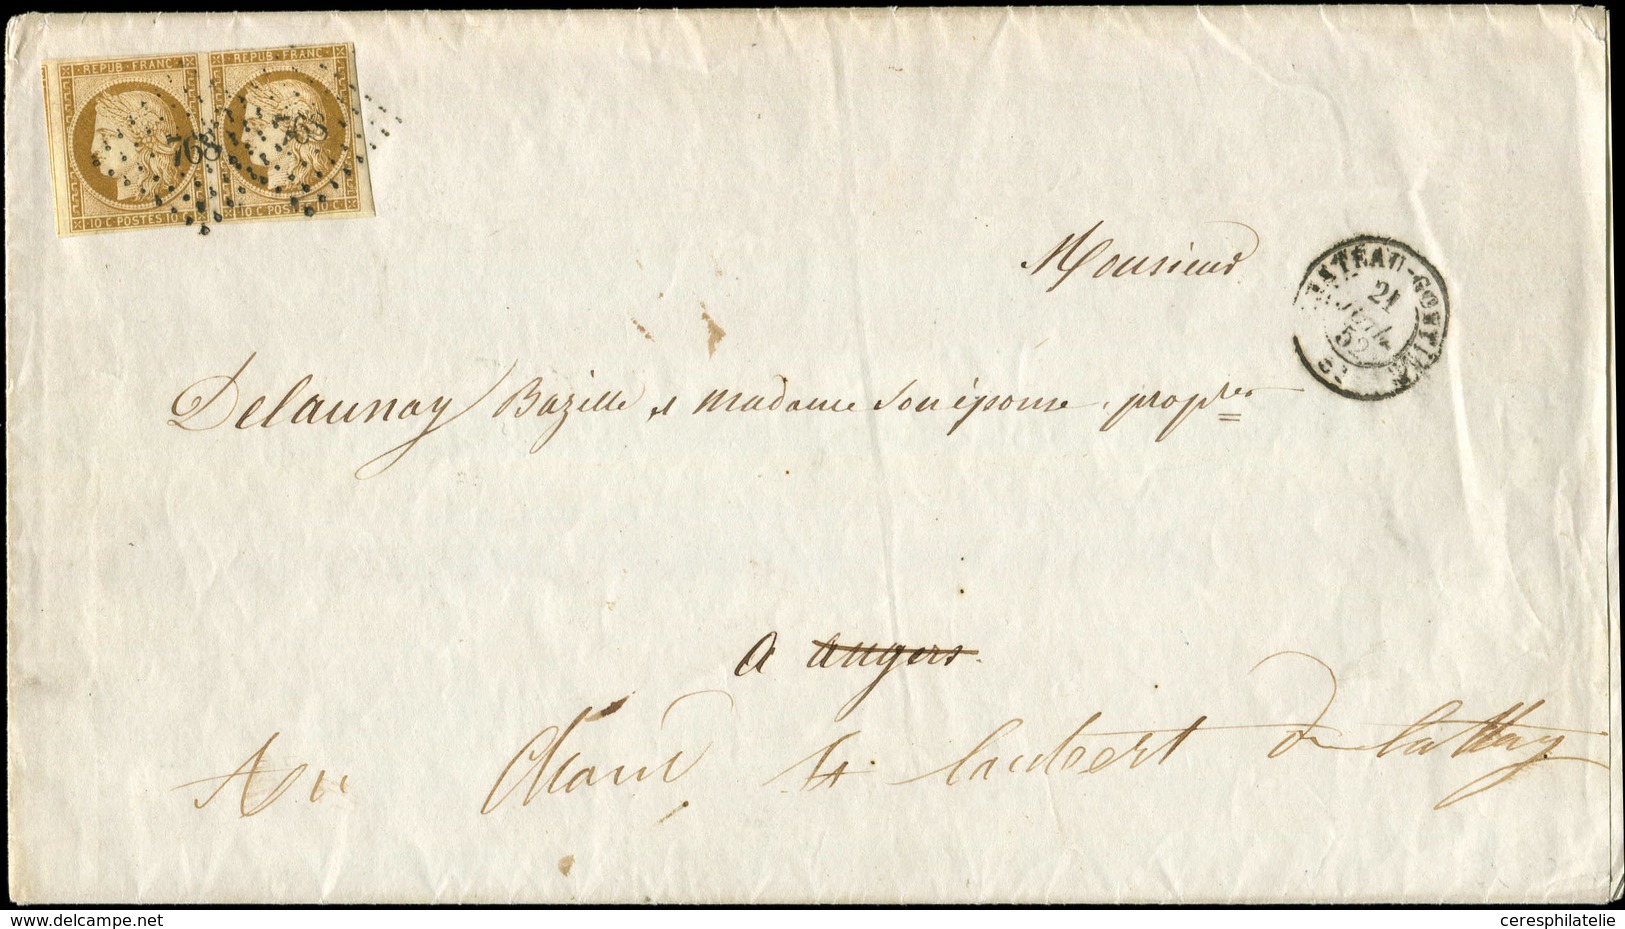 REPUB · FRANC
REPUB · FRANC
768
768
10 C. POSTES 10 C.
10 C. POSTES 10 C.
CHATEAU-GONTIER
21
JUIL
52
Monsieur
Delaunay Bazille et madame Son épouse, propres
a angers.
Au Lambert Du lattay
© www.delcampe.net
ceresphilatelie